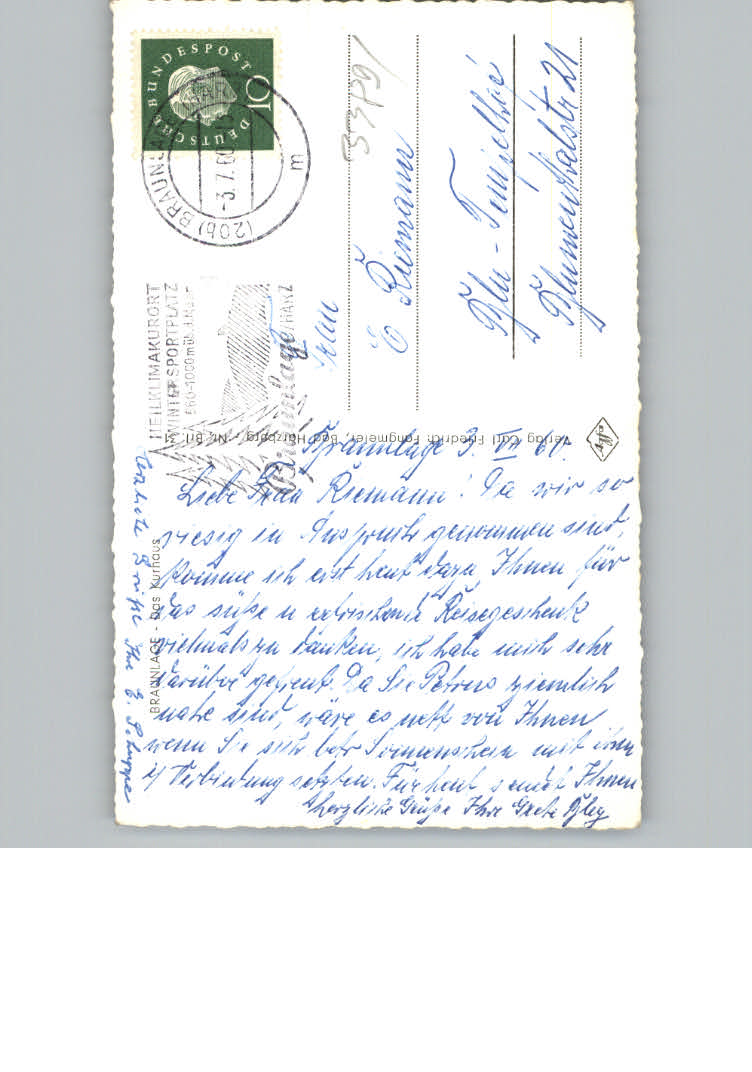 DEUTSCHE BUNDESPOST
10
(20b) BRAUNLAGE (HARZ)
-3.7.60
m
HEILKLIMAKURORT
WINTERSPORTPLATZ
560-1000 m üb. d. Meer
Braunlage/HARZ
33791
Frau
E Riemann
Bln - Tempelhof
Blumenthalstr 21
Verlag Carl Friedrich Fangmeier, Bad Harzburg - Nr. Brl.
Agfa
BRAUNLAGE - Das Kurhaus
Braunlage 3. VII 60.
Liebe Frau Riemann! Da wir so
riesig in Anspruch genommen sind,
komme ich erst heut dazu, Ihnen für
das süße u erfrischende Reisegeschenk
vielmals zu danken, ich habe mich sehr
darüber gefreut. Da Sie Petrus ziemlich
nahe sind, wäre es nett von Ihnen
wenn Sie sich betr Sonnenschein mit ihm
i/ Verbindung setzten. Für heut sendet Ihnen
herzliche Grüße Ihre Grete Bley
Grüße Ihre E.